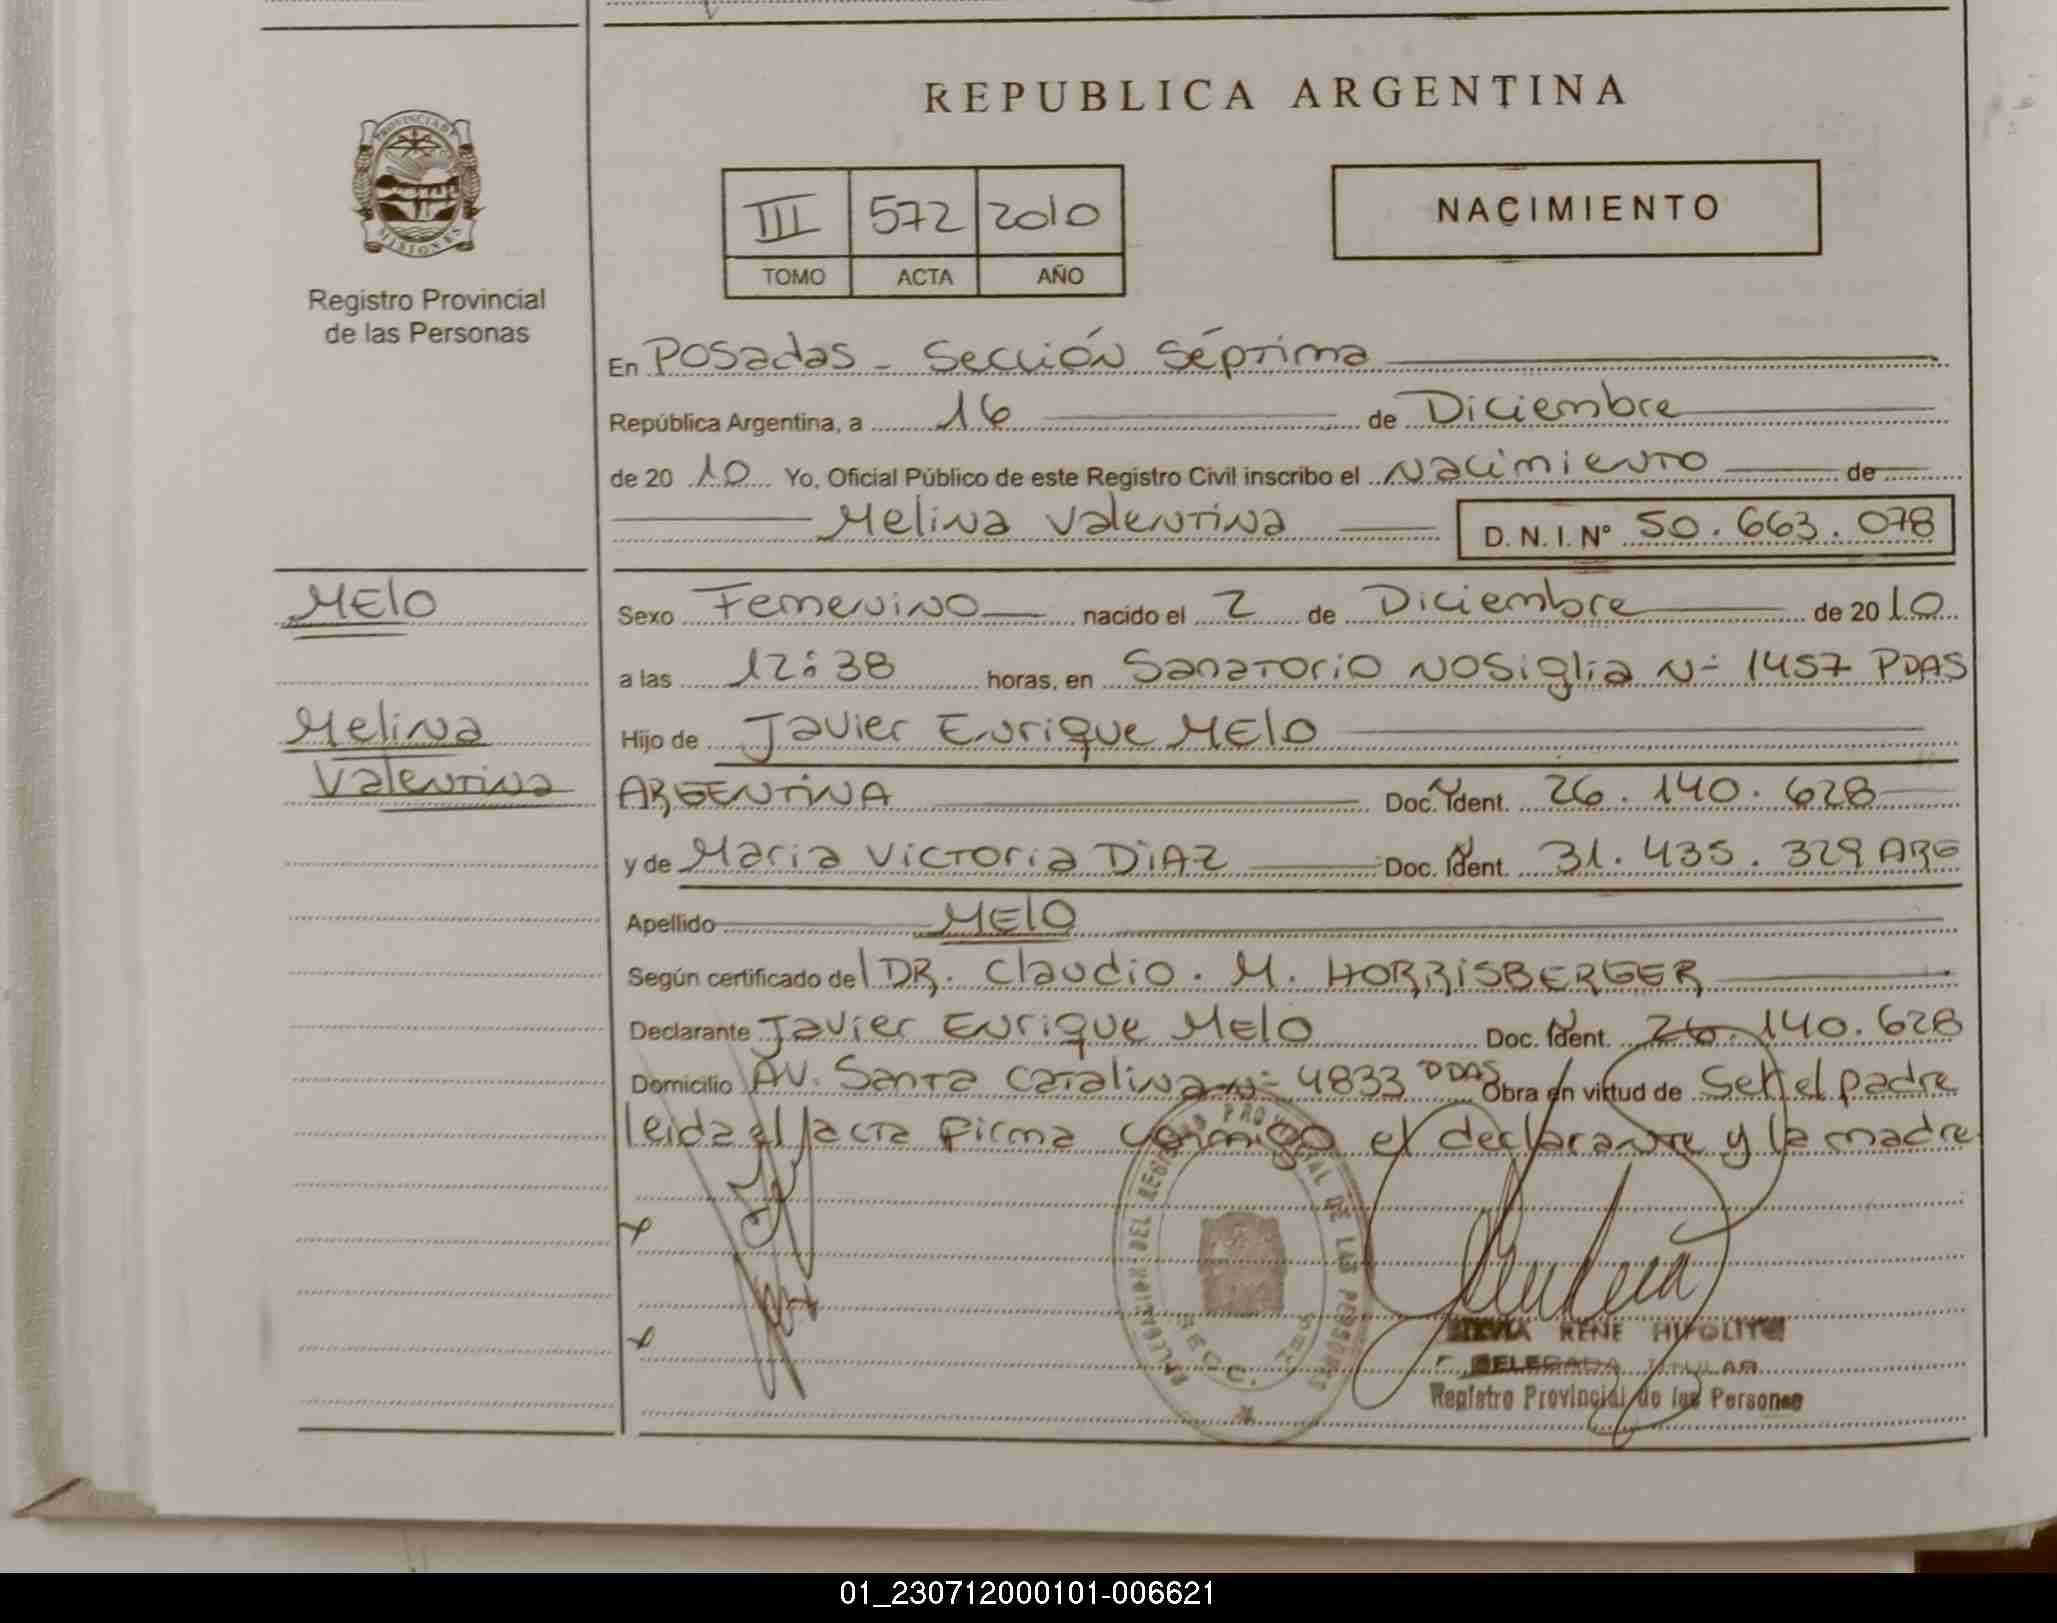 REPUBLICA ARGENTINA
PROVINCIA DE
MISIONES
Registro Provincial
de las Personas
III 572 2010
TOMO ACTA AÑO
NACIMIENTO
En Posadas - Sección Séptima
República Argentina, a 16 de Diciembre
de 20 10 Yo, Oficial Público de este Registro Civil inscribo el Nacimiento de
Melina Valentina D. N. I. Nº 50.663.078
MElo
Melina
Valentina
Sexo Femenino nacido el 2 de Diciembre de 20 10
a las 12:38 horas, en Sanatorio Nosiglia Nº 1457 PDAS
Hijo de Javier Enrique MElo
ARGENTINA Doc. Ident. 26.140.628
y de Maria Victoria DiAZ Doc. Ident. 31.435.329 ARG
Apellido MElo
Según certificado del DR. Claudio. M. HORRiSBERGER
Declarante Javier Enrique MElo Doc. Ident. 26.140.628
Domicilio AV. Santa Catalina Nº 4833 PDAS Obra en virtud de Ser el padre
leida el acta firma conmigo el declarante y la madre
DELEGACION DEL REGISTRO PROVINCIAL DE LAS PERSONAS
SILVIA RENE HIPOLITO
DELEGADA TITULAR
Registro Provincial de las Personas
01_230712000101-006621